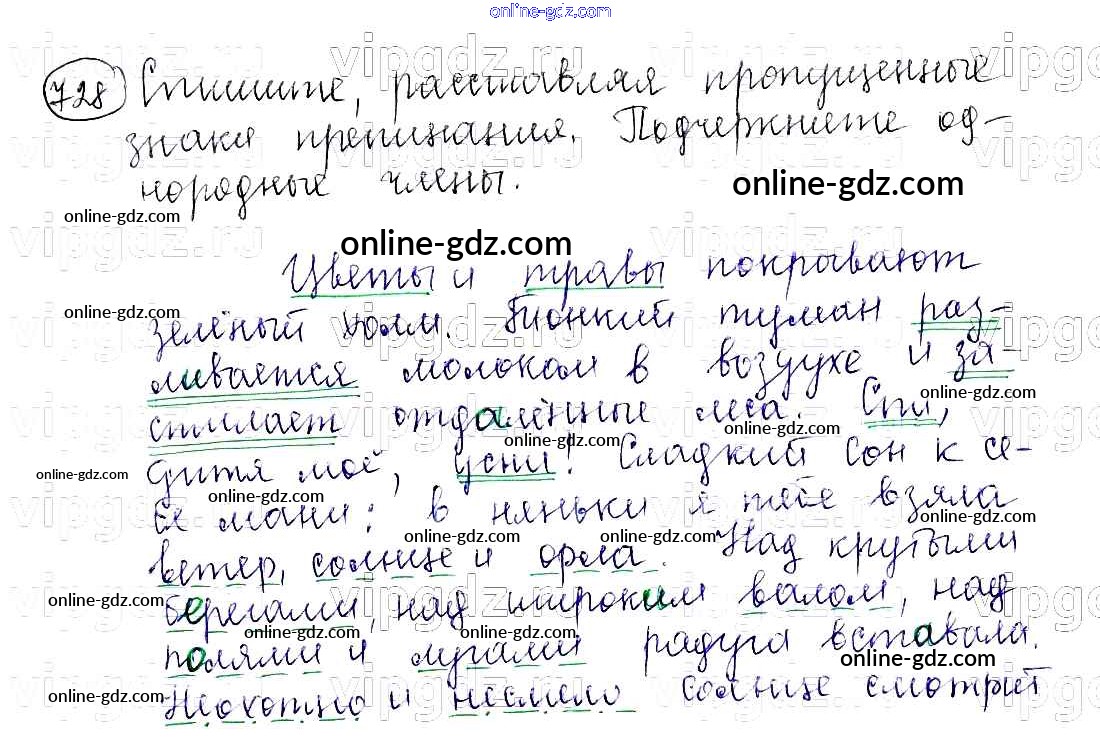 online-gdz.com
728 Спишите, расставляя пропущенные
знаки препинания. Подчеркните од-
нородные члены.
online-gdz.com
online-gdz.com
online-gdz.com
Цветы и травы покрывают
online-gdz.com
зелёный холм. Тонкий туман раз-
ливается молоком в воздухе и за-
online-gdz.com
стилает отдалённые леса. Спи,
online-gdz.com
дитя моё, усни! Сладкий сон к се-
online-gdz.com
online-gdz.com
бе мани: в няньки я тебе взяла
online-gdz.com
ветер, солнце и орла. Над крутыми
online-gdz.com online-gdz.com
берегами, над широким валом, над
online-gdz.com
online-gdz.com
полями и лугами радуга вставала.
online-gdz.com
Неохотно и несмело солнце смотрит
online-gdz.com
online-gdz.com